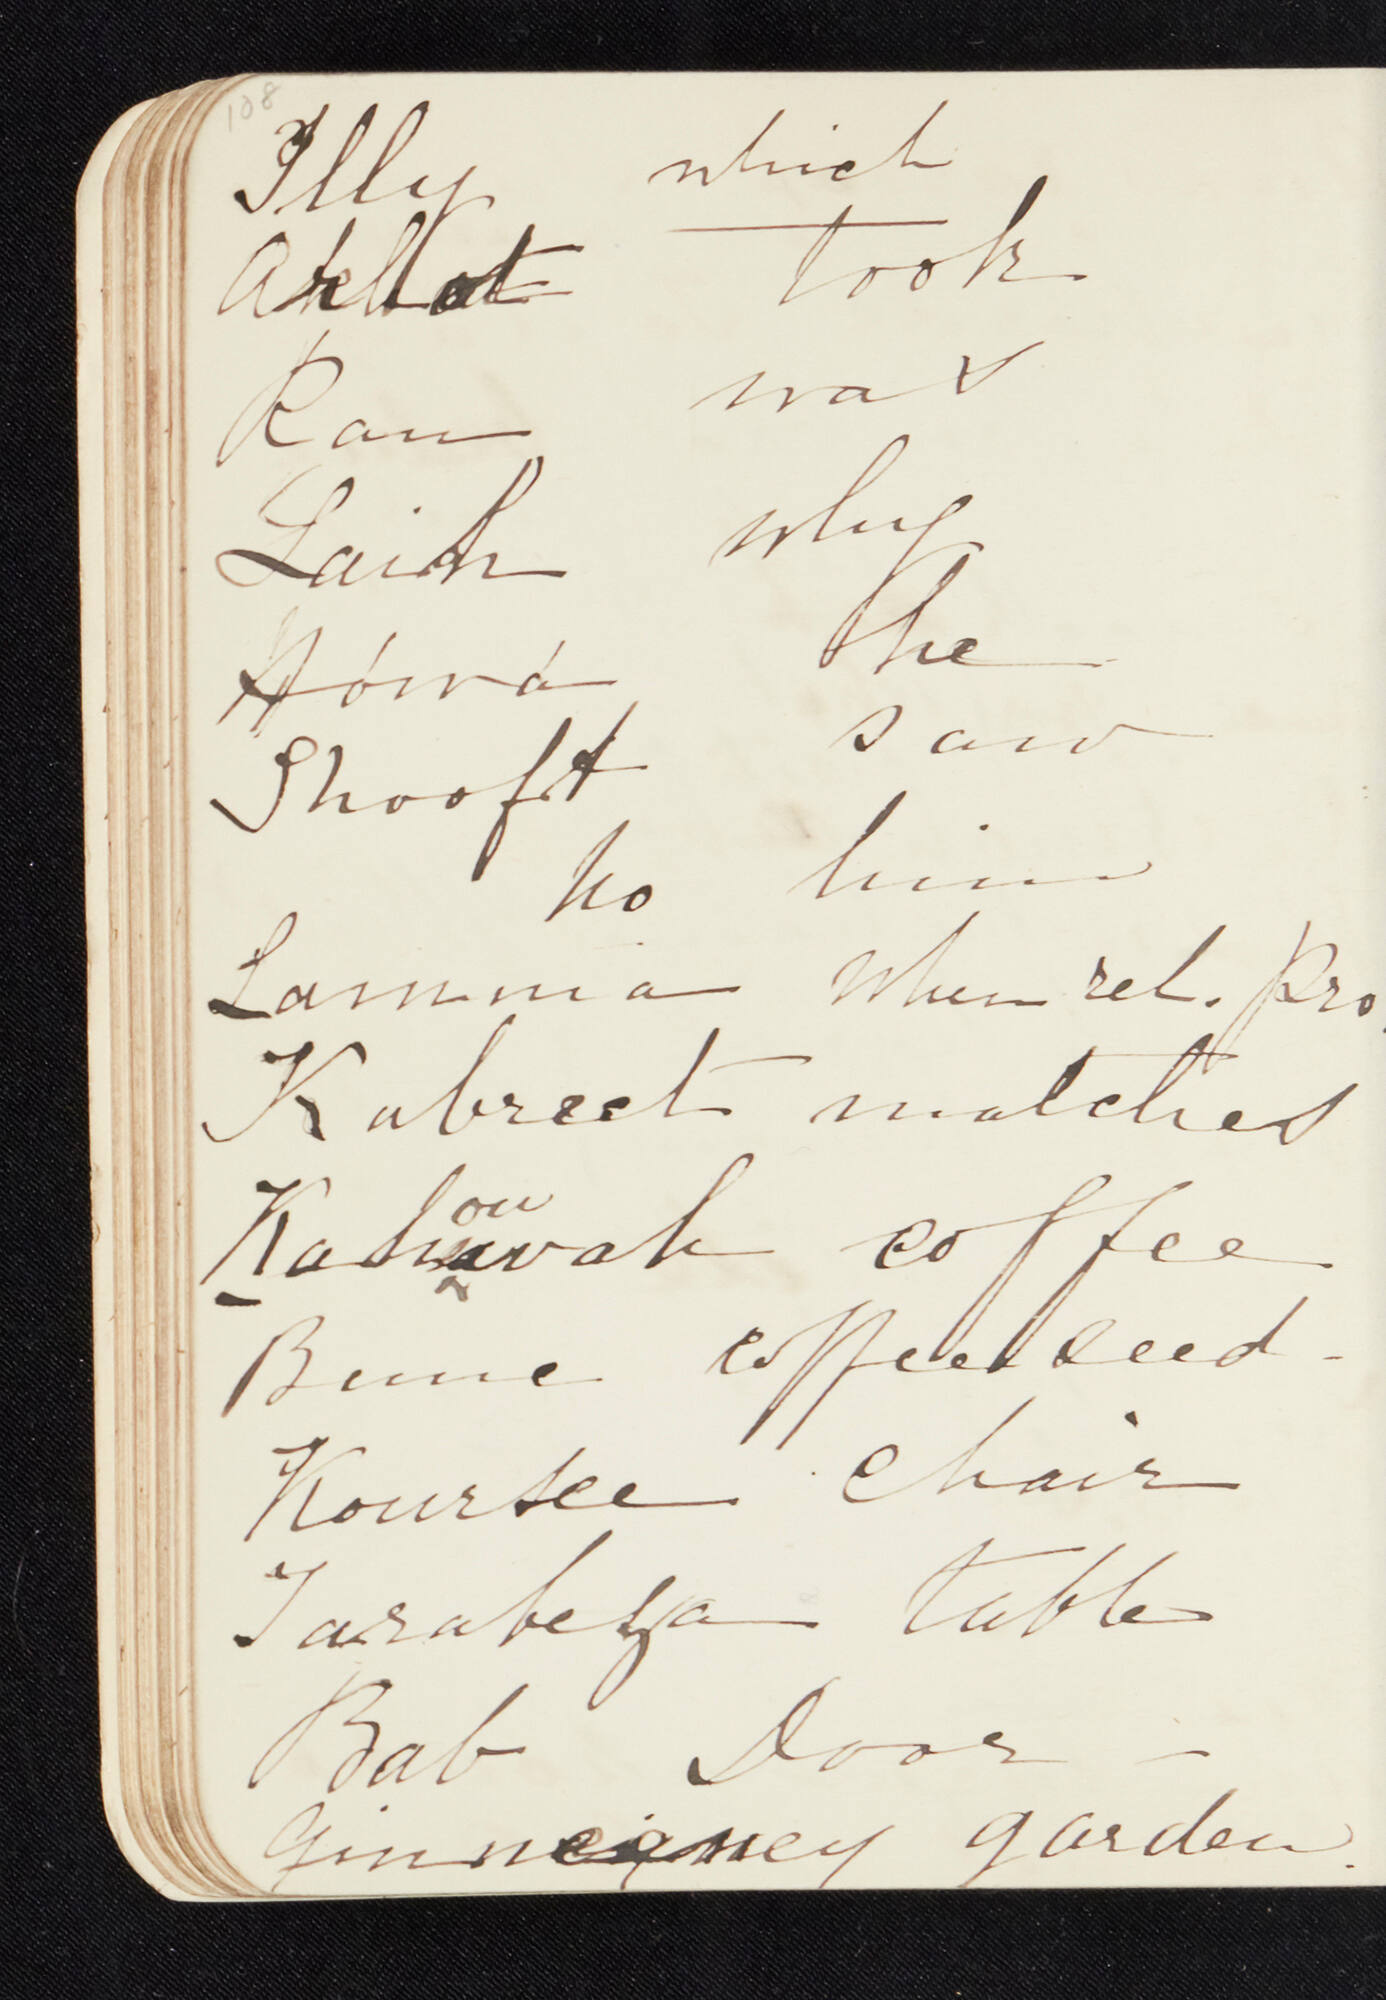 108
Illy which
Akhat took
Kan was
Laih why
Hówá he
Shooft saw
ho him
Lamma when rel. pro.
Kabreet matches
Kahouwah coffee
Bunne coffee seed -
Koursee chair
Tarabeza table
Bab Door -
garden.